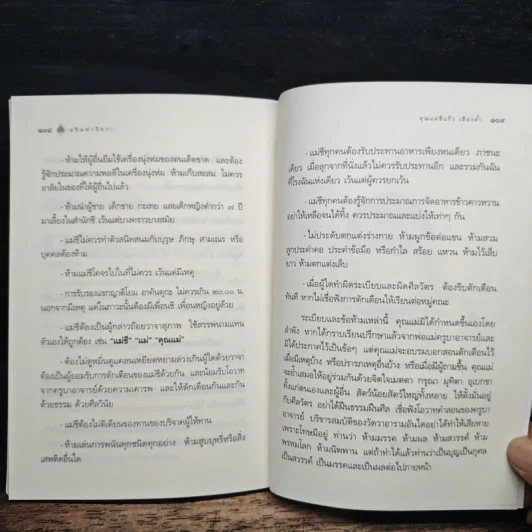 ๑๐๘ จริยาปาริสุทธิ
- ห้ามให้ผู้อื่นยืมใช้เครื่องนุ่งห่มของตนเด็ดขาด และต้อง
รู้จักประมาณความพอดีในเครื่องนุ่งห่ม ห้ามเก็บสะสม ไม่ควร
อาลัยในของที่ให้ผู้อื่นไปแล้ว
- ห้ามนำผู้ชาย เด็กชาย กะเทย และเด็กหญิงต่ำกว่า ๗ ปี
มาเลี้ยงในสำนักชี เว้นแต่บางคราวบางสมัย
- แม่ชีไม่ควรทำตัวสนิทสนมกับบุรุษ ภิกษุ สามเณร หรือ
บุคคลต้องห้าม
- ห้ามแม่ชีโคจรไปในที่ไม่ควร เว้นแต่มีเหตุ
- การรับรองแขกญาติโยม อาคันตุกะ ไม่ควรเกิน ๒๐.๐๐ น.
นอกจากมีเหตุ แต่ในภาวะนั้นต้องมีเพื่อนชี เพื่อนหญิงอยู่ด้วย
- แม่ชีต้องเป็นผู้กล่าวถ้อยวาจาสุภาพ ใช้สรรพนามแทน
ตัวเองให้ถูกต้อง เช่น "แม่ชี" "แม่" "คุณแม่"
- ต้องไม่ดูหมิ่นดูแคลนเหยียดหยามล่วงเกินผู้ใดด้วยวาจา
ต้องเป็นผู้ยอมรับการตักเตือนของแม่ชีด้วยกัน และน้อมรับโอวาท
จากครูบาอาจารย์ด้วยความเคารพ และให้ตักเตือนกันและกัน
ด้วยธรรม ด้วยศีลวินัย
- แม่ชีต้องไม่ติเตียนของทานของบริจาคผู้ให้ทาน
- ห้ามเล่นการพนันทุกชนิดทุกอย่าง ห้ามสูบบุหรี่หรือสิ่ง
เสพติดอื่นใด
คุณแม่ชีแก้ว เสียงล้ำ ๑๐๙
- แม่ชีทุกคนต้องรับประทานอาหารเพียงหนเดียว ภาชนะ
เดียว เมื่อลุกจากที่นั่งแล้วไม่ควรรับประทานอีก และรวมกันฉัน
ที่โรงฉันแห่งเดียว เว้นแต่ผู้ควรยกเว้น
- แม่ชีทุกคนต้องรู้จักการประมาณการจัดอาหารข้าวคาวหวาน
อย่าให้เหลือจนได้ทิ้ง ควรประมาณและแบ่งให้เท่าๆ กัน
- ไม่ประดับตกแต่งร่างกาย ห้ามผูกข้อต่อแขน ห้ามสวม
ลูกประคำคอ ประคำข้อมือ หรือกำไล สร้อย แหวน ห้ามไว้เล็บ
ยาว ห้ามตกแต่งเล็บ
- เมื่อผู้ใดทำผิดระเบียบและผิดศีลวัตร ต้องรีบตักเตือน
ทันที หากไม่เชื่อฟังการตักเตือนให้เรียนต่อหมู่คณะ
ระเบียบและข้อห้ามเหล่านี้ คุณแม่มิได้กำหนดขึ้นเองโดย
ลำพัง หากได้กราบเรียนปรึกษาแล้วจากพ่อแม่ครูบาอาจารย์และมิ
ได้ประกาศไว้เป็นข้อๆ แต่คุณแม่จะอบรมบอกสอนตักเตือนไว้
เมื่อมีเหตุบ้าง หรือปรารภเหตุอื่นบ้าง หรือเมื่อมีผู้ถามขึ้น คุณแม่
จะย้ำเสมอให้อยู่ร่วมกันด้วยจิตใจเมตตา กรุณา มุทิตา อุเบกขา
ทั้งแก่ตนเองและผู้อื่น สัตว์น้อยสัตว์ใหญ่ทั้งหลาย ให้ตั้งมั่นอยู่
กับศีลวัตร อย่าได้ฝืนธรรมฝืนศีล เชื่อฟังโอวาทคำสอนของครูบา
อาจารย์ บริขารสมบัติของวัดวาอารามอันใดอย่าได้ทำให้เสียหาย
เพราะโทษมีอยู่ ท่านว่า ห้ามมรรค ห้ามผล ห้ามสวรรค์ ห้าม
พรหมโลก ห้ามนิพพาน แต่ถ้าทำได้แล้วท่านว่าเป็นบุญเป็นกุศล
เป็นสวรรค์ เป็นมรรคและเป็นผลต่อไปภายหน้า